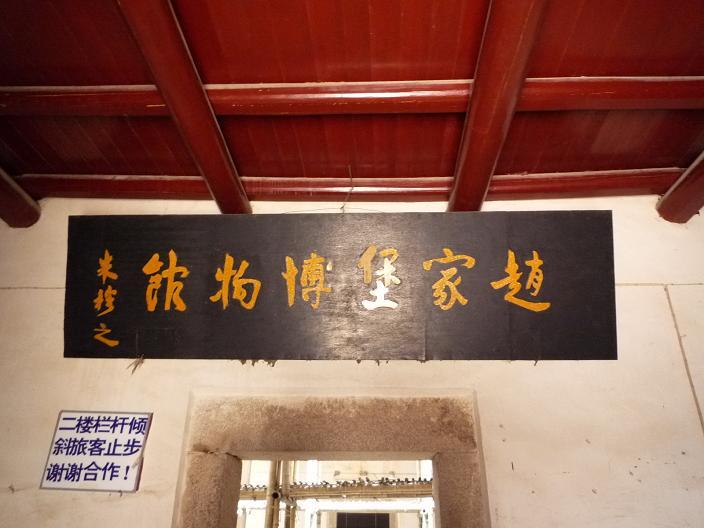 趙家堡博物館
朱穆之
二楼栏杆倾
斜旅客止步
谢谢合作！